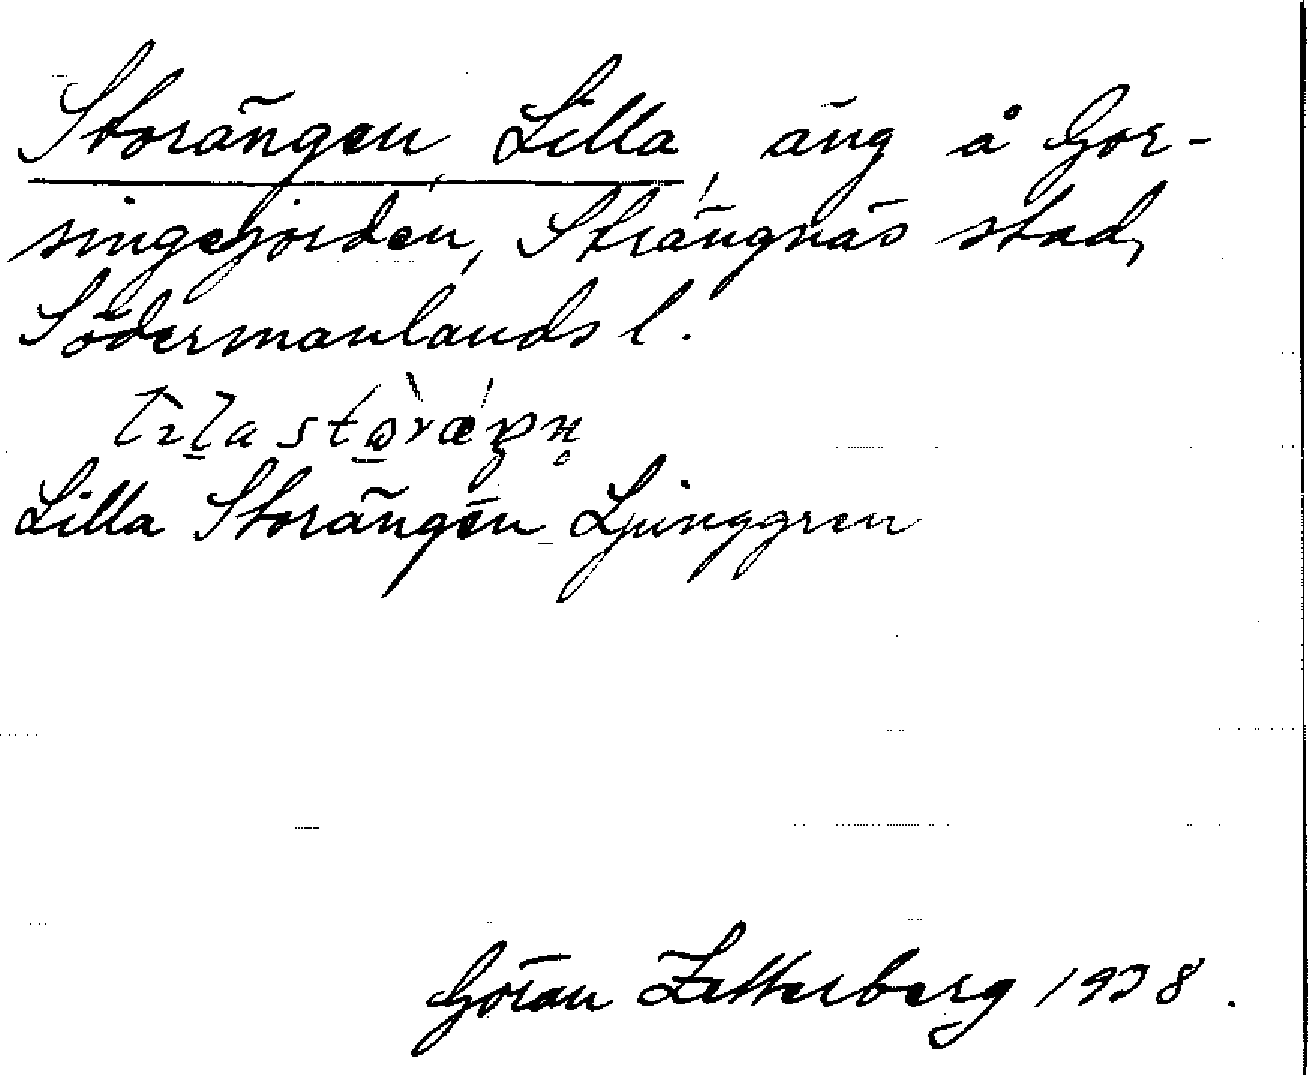 Storängen, Lilla, äng å Gor-
singejorden, Strängnäs stad,
Södermanlands l.
Lilla Storängen Ljunggren
Göran Zetterberg 1938.